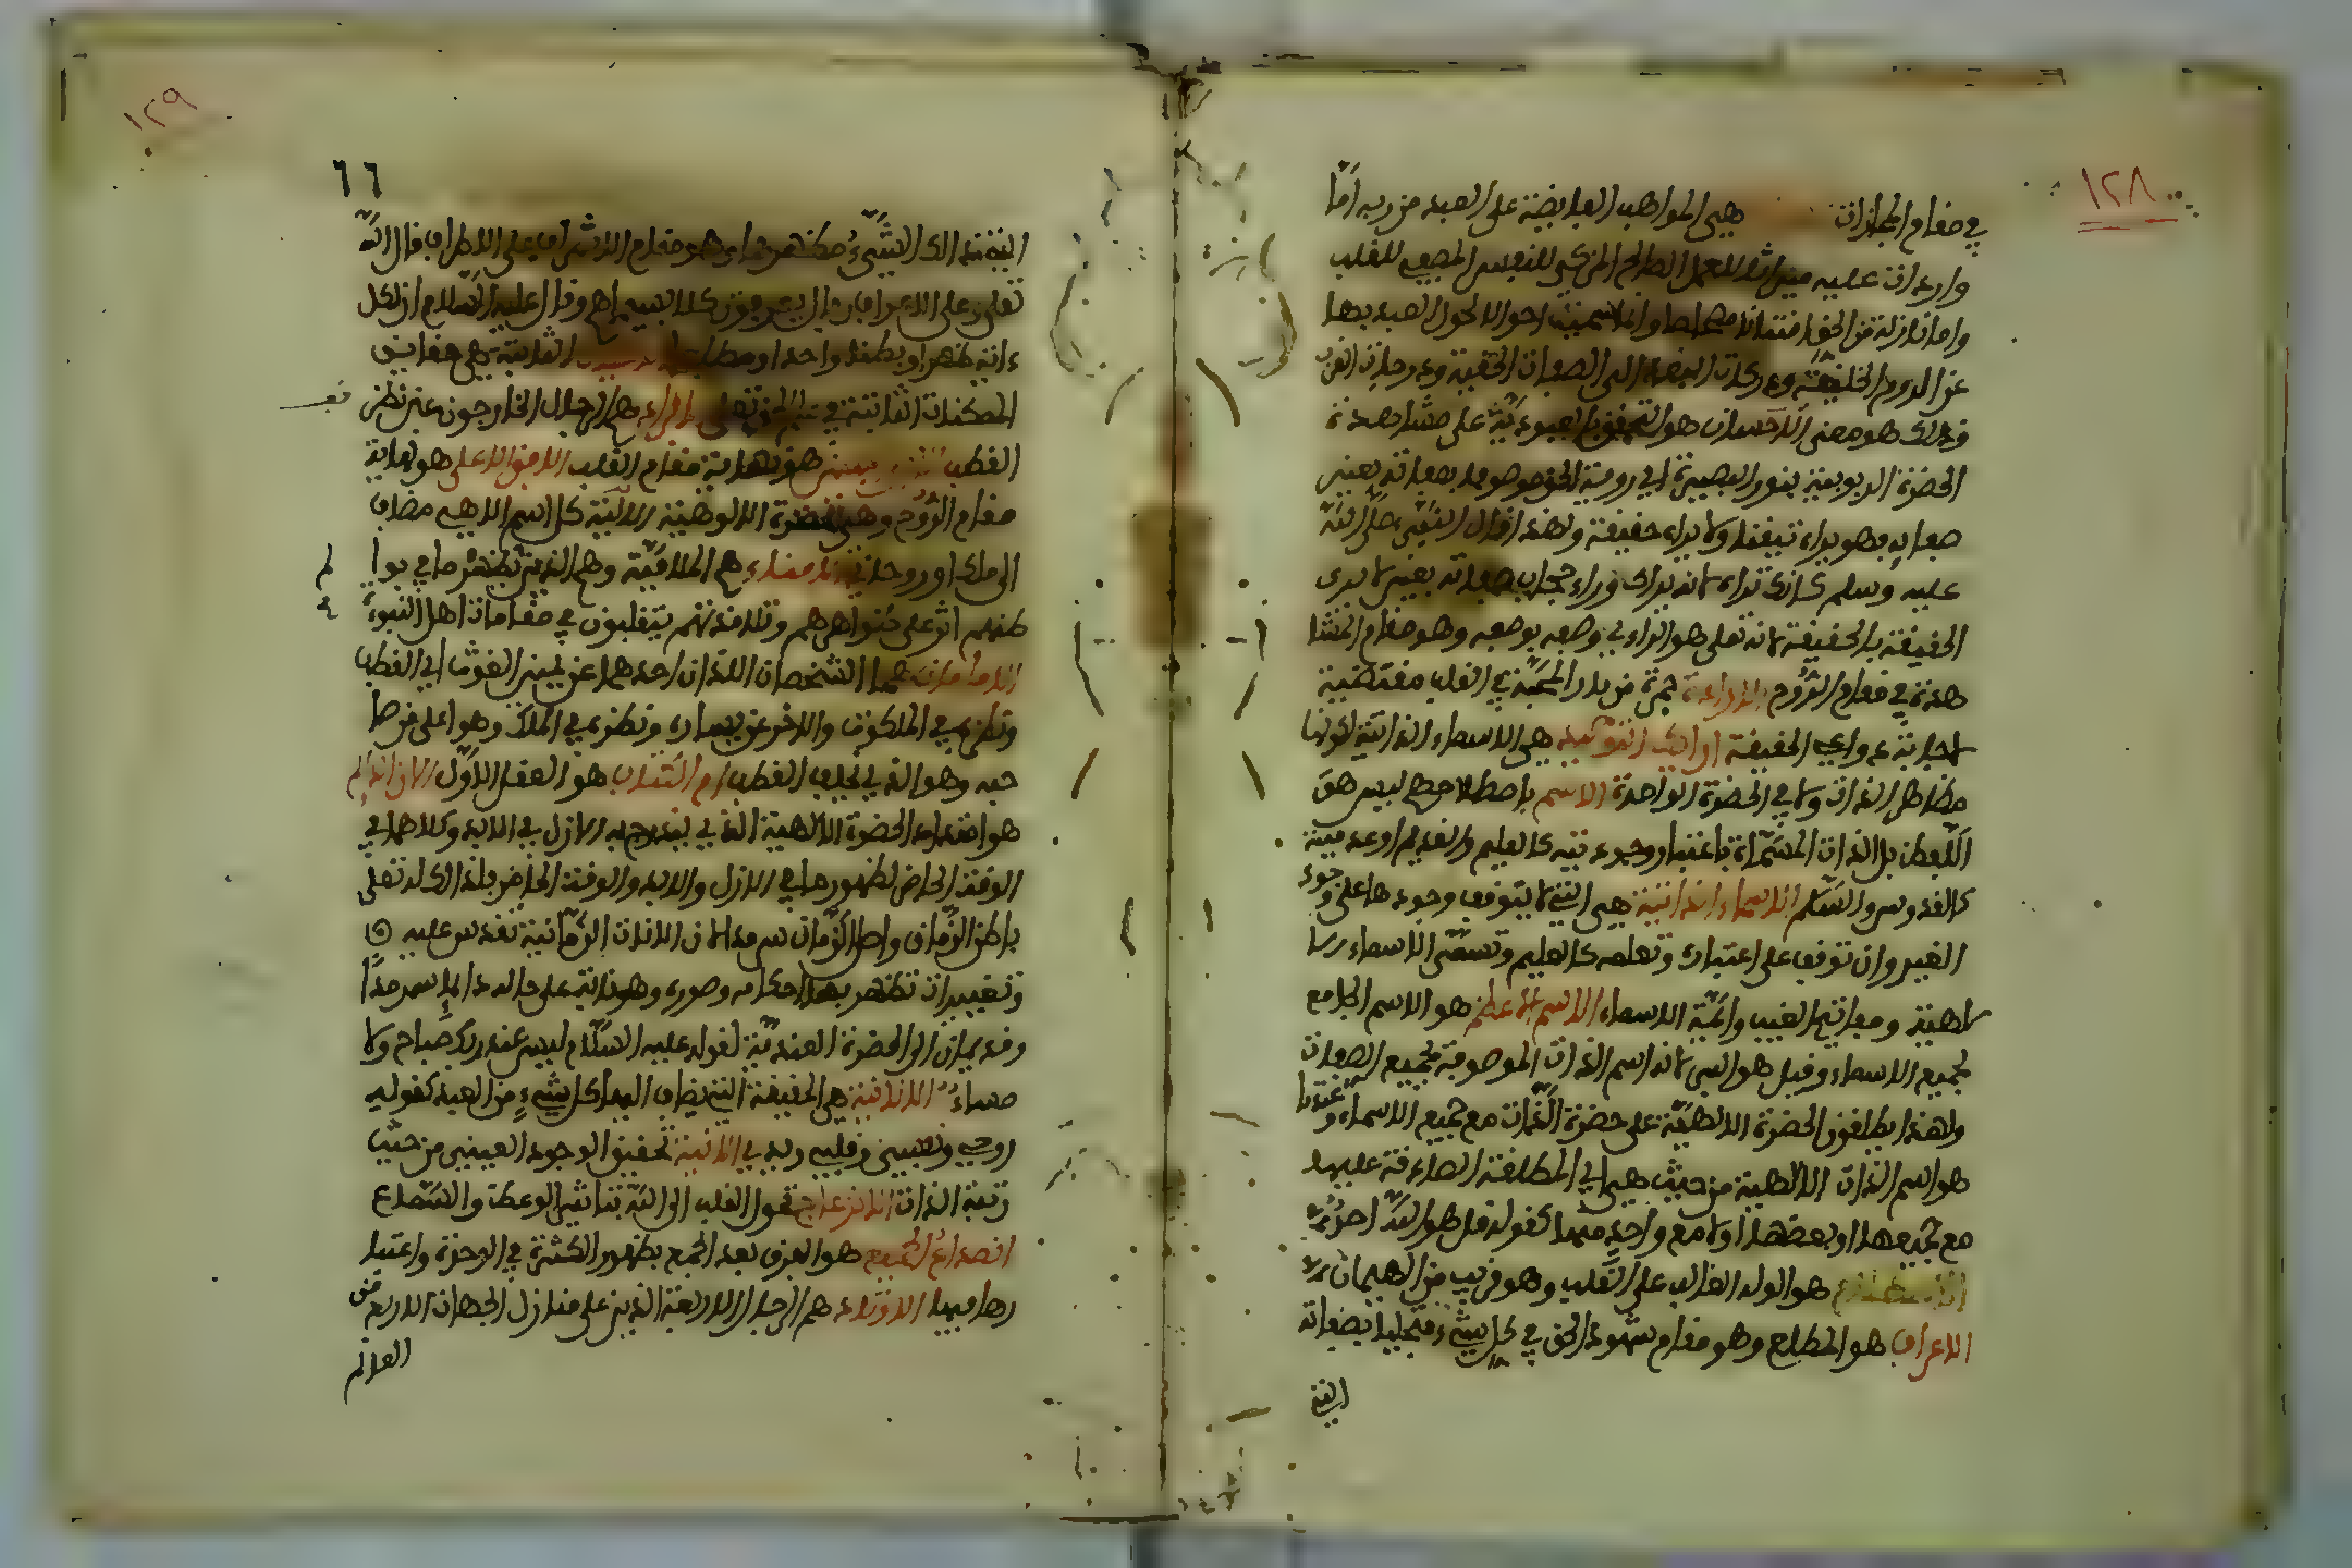 ١٢٨
في مقام المجازات هي المواهب الفايضة على العبد من ربه اما
واردات عليه ميراثا للعمل الصالح المزكي للنفس المصفي للقلب
واما نازلة من الحق امتنانا محضا وانما سميت احوالا لحول العبد بها
عن الرسوم الخلقية ودركات البعد الى الصفات الحقية ودرجات القرب
وذلك هو معنى الاحسان هو التحقق بالعبودية على مشاهدة
الحضرة الربوبية بنور البصيرة اي روية الحق موصوفا بصفاته بعين
صفاته فهو يراه تيقنا ولا يراه حقيقة ولهذا قال النبي صلى الله
عليه وسلم كانك تراه لانه يراك وراء حجاب صفاته بعين لا يرى
الحقيقة بالحقيقة لانه تعلى هو الراءي وصفه بوصفه وهو مقام المشا
هدة في مقام الروح الارادة جمرة من نار المحبة في القلب مقتضية
لاجابة دواعي الحقيقة ارايك التوحيد هي الاسماء الذاتية لكونها
مظاهر الذات ولا في الحضرة الواحدة الاسم باصطلاحهم ليس هو
اللفظ بل الذات المسماة باعتبار وجودية كالعليم والقديم او عدمية
كالقدوس والسلام الاسماء الذاتية هي التي لا يتوقف وجودها على وجود
الغير وان توقف على اعتباره وتعلمه كالعليم وتسمى الاسماء الا
لاهية ومفاتيح الغيب وائمة الاسماء الاسم الاعظم هو الاسم الجامع
لجميع الاسماء وقيل هو النبي لانه اسم الذات الموصوفة بجميع الصفات
ولهذا يطلقون الحضرة الالهية على حضرة الذات مع جميع الاسماء وعندنا
هو اسم الذات الالهية من حيث هي اي المطلقة الصادقة عليها
مع جميعها او بعضها او لا مع واحد منها كقوله قل هو الله احد
الاصطلام هو الوله الغالب على القلب وهو قريب من الهيمان
الاعراف هو المطلع وهو مقام شهود الحق في كل شيء متجليا بصفاته
التي
١٢٩
٦٦
التي ذلك الشيء مظهرها وهو مقام الاشراف على الاطراف قال الله
تعلى وعلى الاعراف رجال يعرفون كلا بسيماهم وقال عليه السلام ان لكل
ءاية ظهرا وبطنا وحدا ومطلعا الثابتة هي حقايق
الممكنات الثابتة في علم الحق تعلى الافراد هم الرجال الخارجون عن نظر
القطب المبين هو نهاية مقام القلب الافق الاعلى هو نهاية
مقام الروح وهي الحضرة الالوهية الالية كل اسم الاهي مضاف
الى ملك او روحاني الامناء هم الملامتية وهم الذين لم يظهر ما في بوا
طنهم اثر على ظواهرهم وتلامذتهم يتقلبون في مقامات اهل النبوة
الامامان هما الشخصان اللذان احدهما عن يمين الغوث اي القطب
ونظره في الملكوت والاخر عن يساره ونظره في الملك وهو اعلى من صا
حبه وهو الذي يخلف القطب ام الكتاب هو العقل الاول الان الدايم
هو امتداد الحضرة الالهية الذي يندرج به الازل في الابد وكلاهما في
الوقت الحاضر لظهور ما في الازل والابد والوقت الحاضر بلذلك له تعلى
باطن الزمان واصل الزمان سرمدا لان الانات الزمانية نقوس عليه
وتغييرات تظهر بها احكامه وصوره وهو ثابت على حاله دائما سرمدا
وقد يضاف الى الحضرة العندية لقوله عليه السلام ليس عند ربك صباح ولا
مساء الانانية هي الحقيقة التي يضاف اليها كل شيء من العبد كقوله
روحي ونفسي وقلبي ويدي الانية تحقيق الوجود العيني من حيث
رتبة الذات الانزعاج تحول القلب الى الله بتاثير الوعظ والسماع
انصداع الجمع هو الفرق بعد الجمع بظهور الكثرة في الوحدة واعتبا
رها فيها الاوتاد هم الرجال الاربعة الذين على منازل الجهات الاربع من
العالم